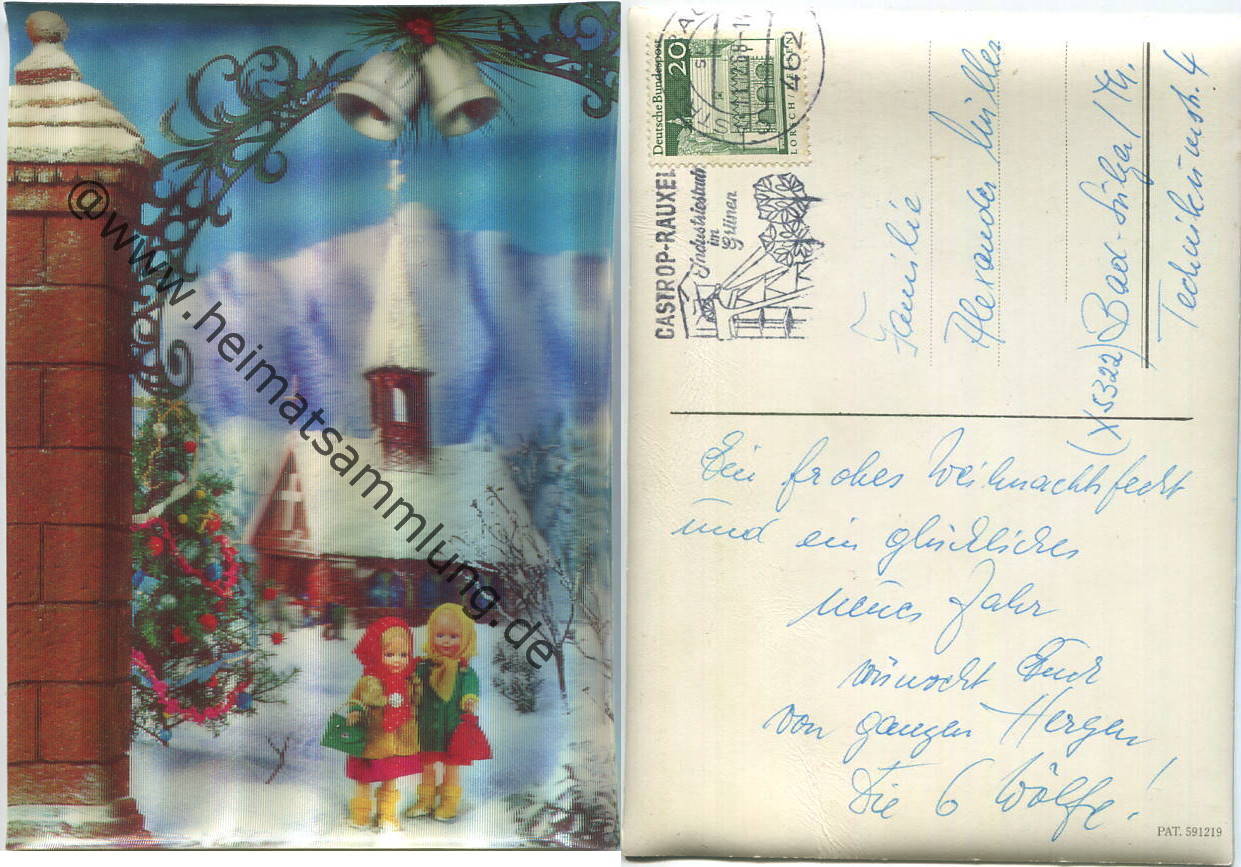 @www.heimatsammlung.de
Deutsche Bundespost
20
LORSCH/HESSEN
462
CASTROP-RAUXEL
Industriestadt
im
Grünen
Familie
Alexander Müller
(X5322) Bad-Sulza/Th.
Technikumstr. 4
Ein frohes Weihnachtsfest
und ein glückliches
neues Jahr
wünscht Euch
von ganzen Herzen
Die 6 Wölfe!
PAT. 591219